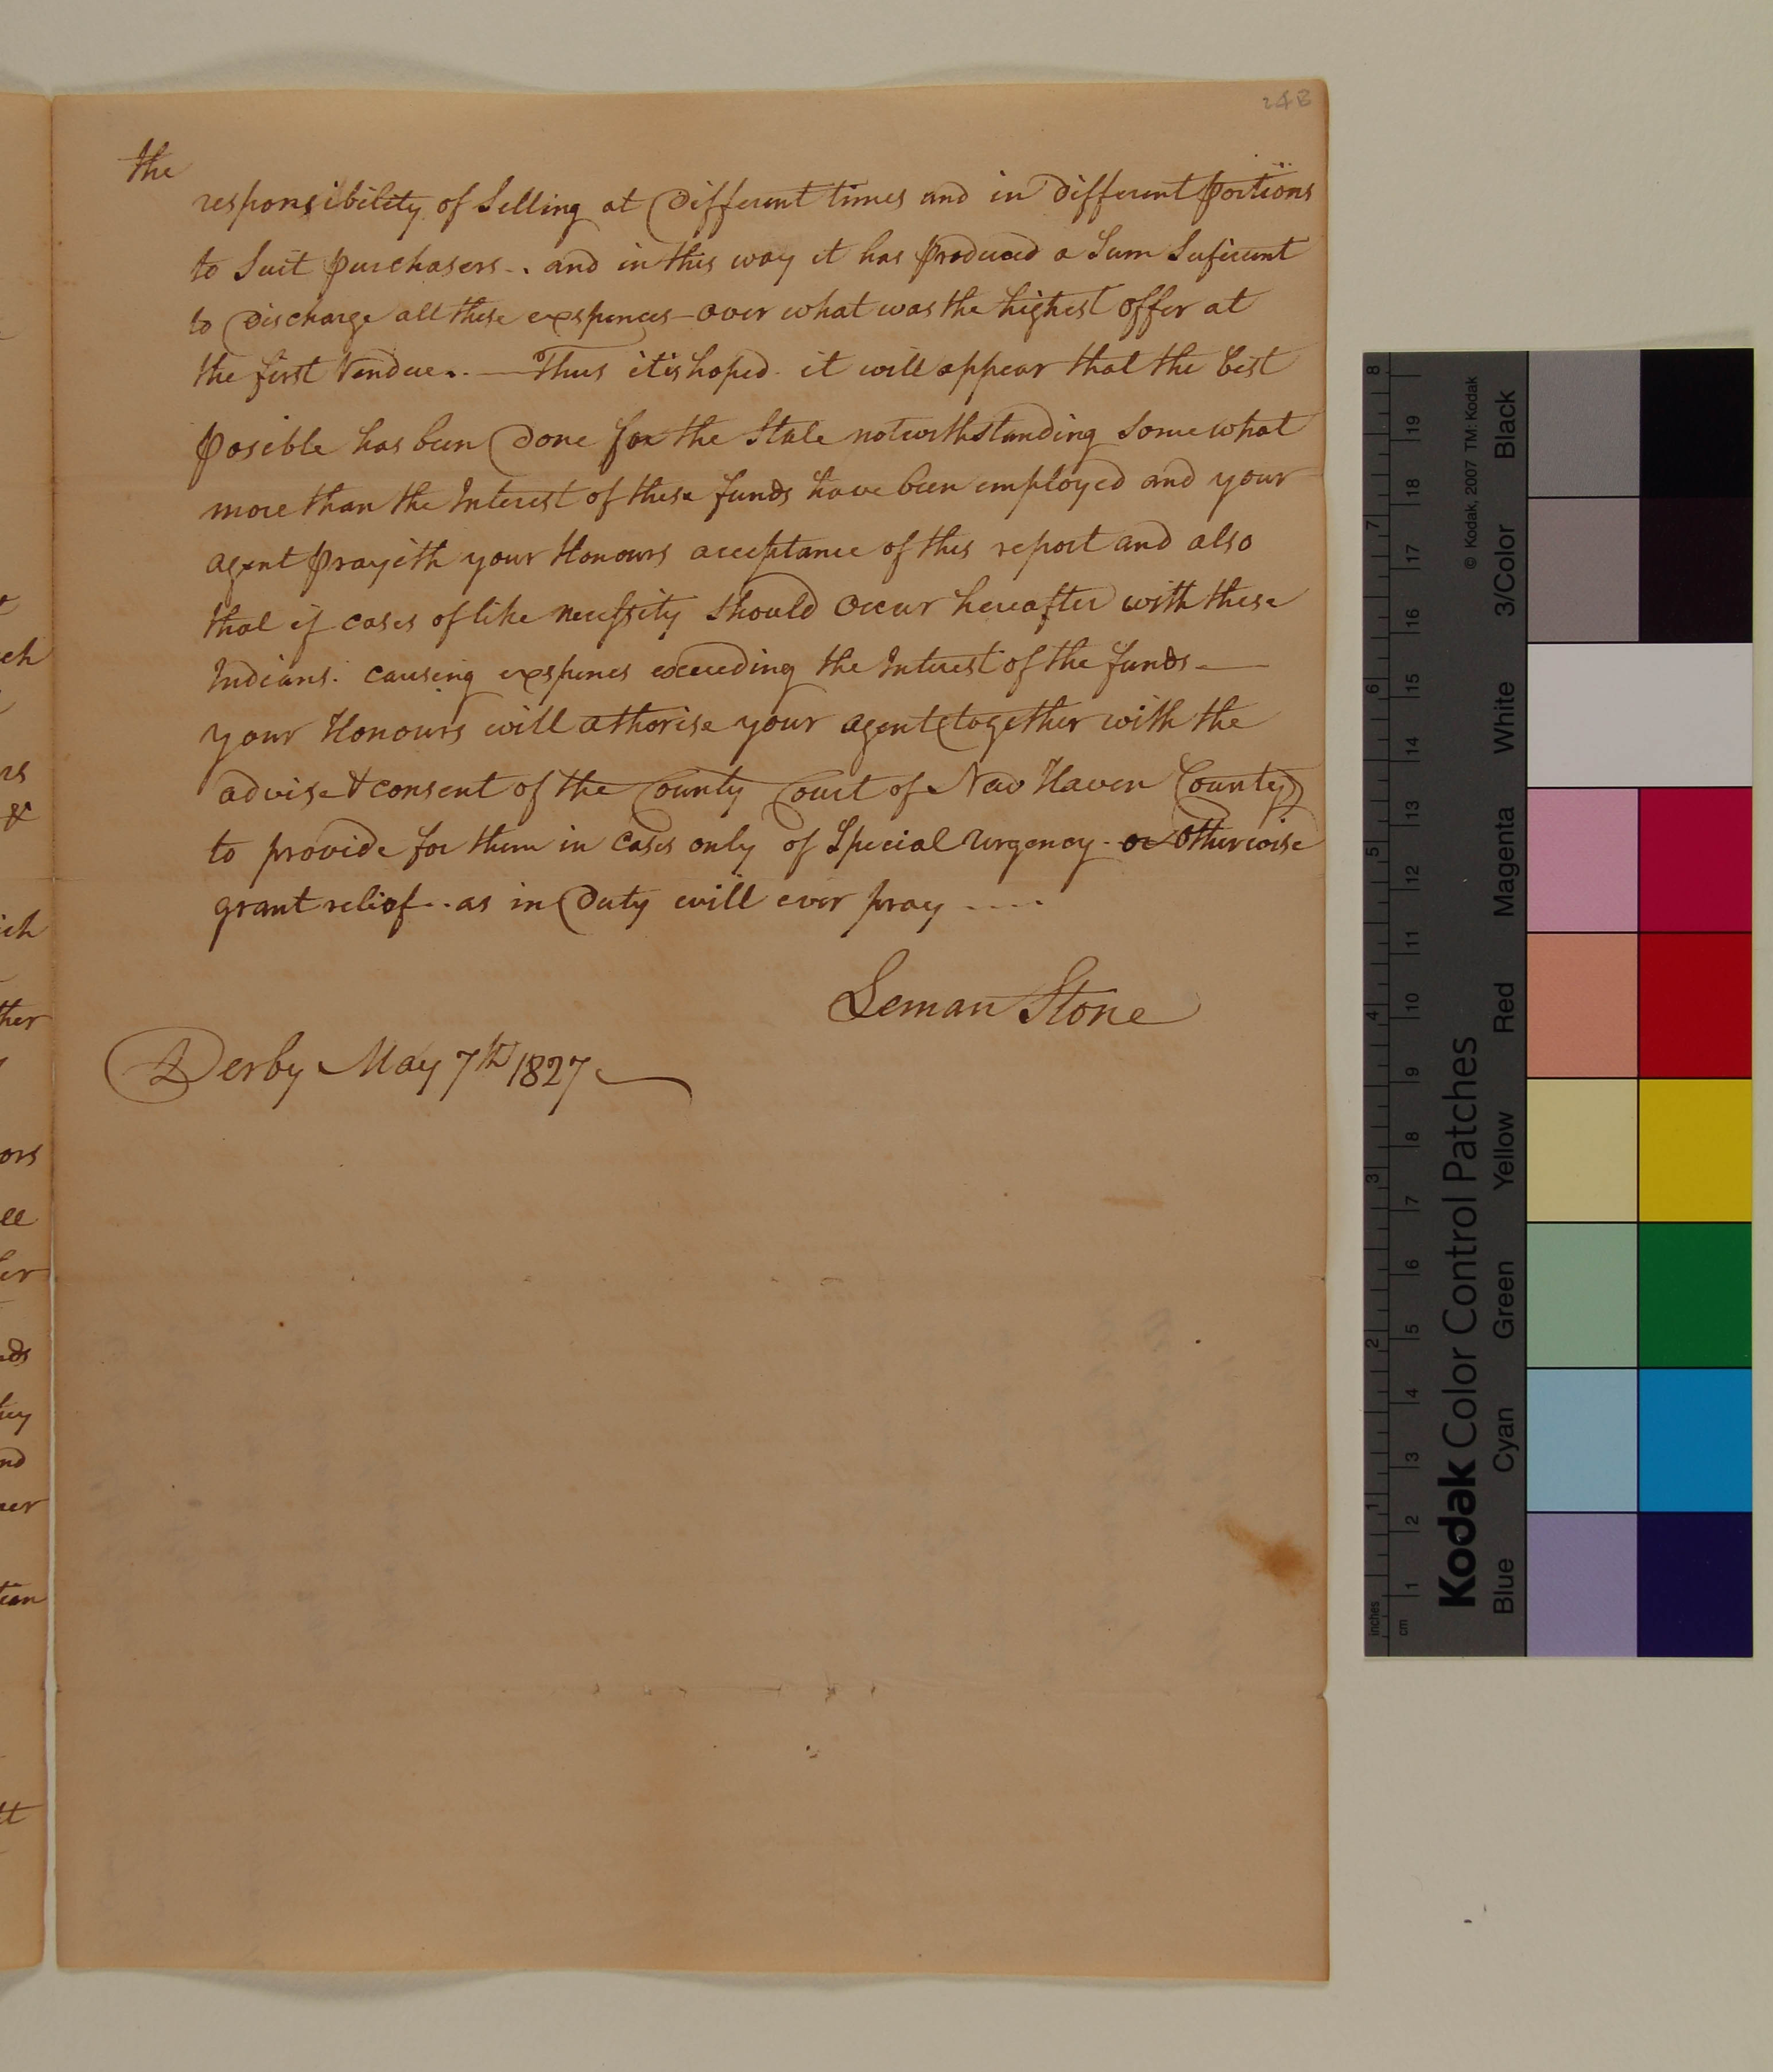 24B
the
responsibility of Selling at Different times and in Different Portions
to Suit Purchasers.. and in this way it has Produced a Sum Suficient
to Discharge all these expences—over what was the highest Offer at
the first Vendue.. —Thus it is hoped. it will appear that the best
Posible has been Done for the State notwithstanding Somewhat
more than the Interest of these funds have been employed and your
agent Prayeth your Honours acceptance of this report and also
that if cases of like necessity Should Occur hereafter with these
Indians. causing expences exceeding the Interest of the funds—
your Honours will athorise your agent (together with the
advise & consent of the County Court of New Haven County)
to provide for them in Cases only of Special Urgency- or Otherwise
grant relief.. as in Duty will ever pray ----
Leman Stone
Derby May 7th 1827
ch
rs
&
ich
ther
ors
ll
er
nds
nd
tt
Kodak Color Control Patches
© Kodak, 2007 TM: Kodak
Blue Cyan Green Yellow Red Magenta White 3/Color Black
inches 1 2 3 4 5 6 7 8
cm 1 2 3 4 5 6 7 8 9 10 11 12 13 14 15 16 17 18 19